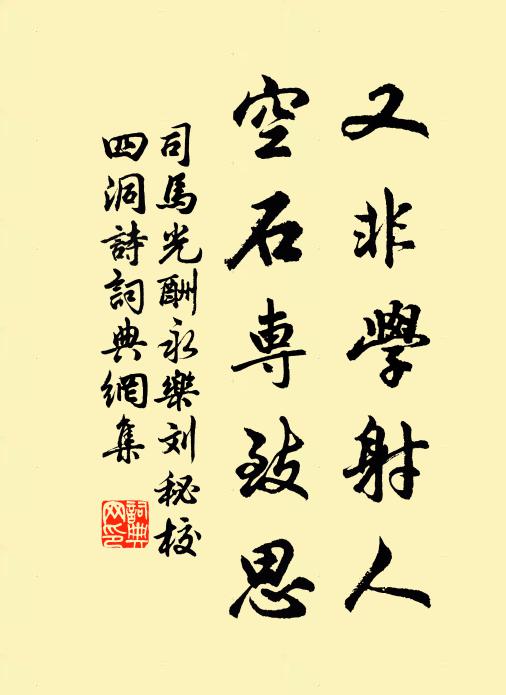 又非學射人
空石専致思
司馬光酬永樂刘秘校
四洞詩詞典網集
詞典
网印